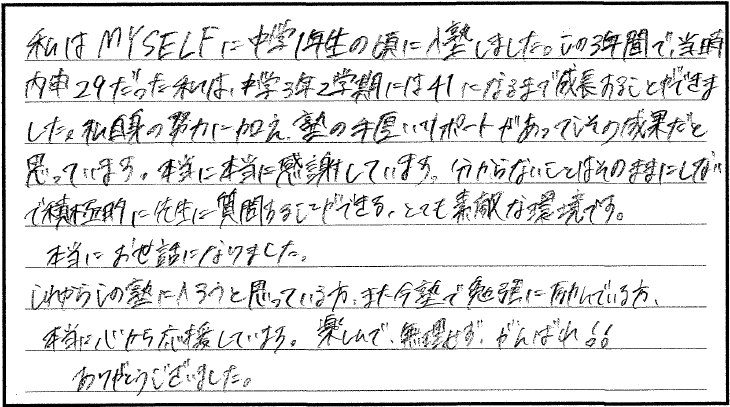 私はMYSELFに中学1年生の頃に入塾しました。この3年間で、当時
内申29だった私は、中学3年2学期には41になるまで成長することができま
した。私自身の努力に加え、塾の手厚いサポートがあってこその成果だと
思っています。本当に本当に感謝しています。分からないことはそのままにしない
で積極的に先生に質問することができる、とても素敵な環境です。
本当にお世話になりました。
これからこの塾に入ろうと思っている方、また今塾で勉強に励んでいる方、
本当に心から応援しています。楽しんで、無理せず、がんばれ!!
ありがとうございました。